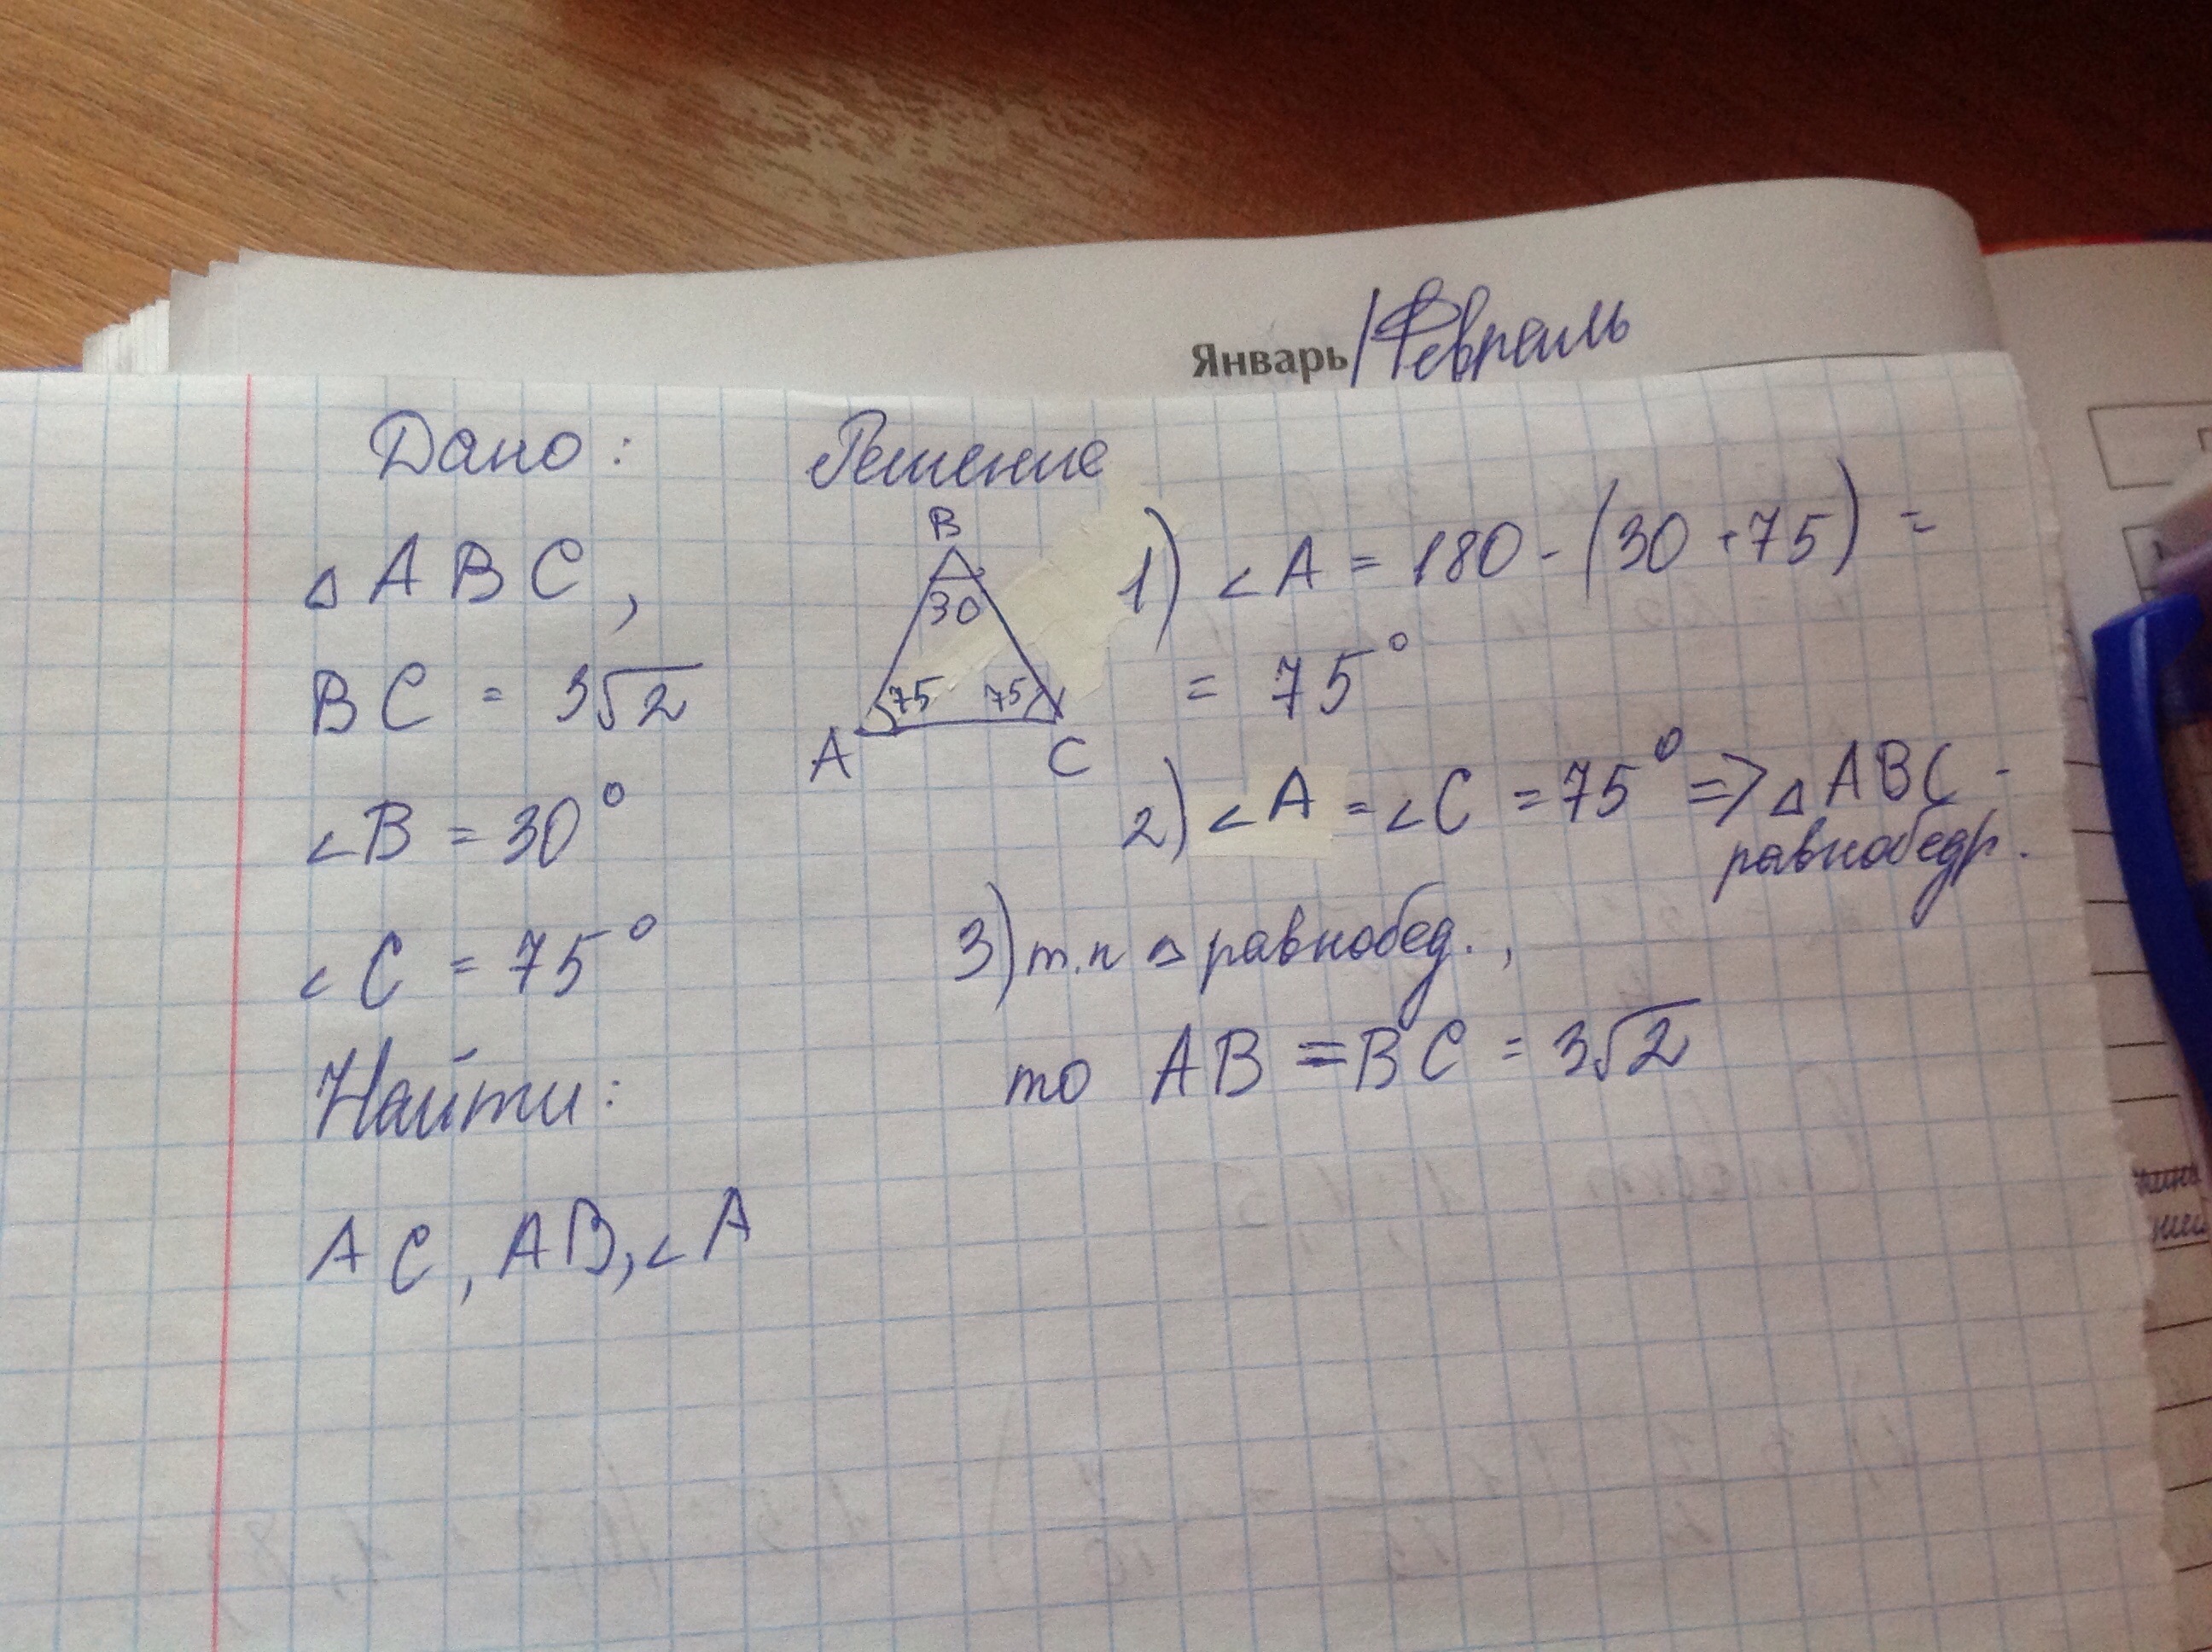 Январь/Февраль
Дано:
△ABC,
BC = 3√2
∠B = 30°
∠C = 75°
Найти:
AC, AB, ∠A
Решение
B
30
75 75
A C
1) ∠A = 180 - (30 + 75) =
= 75°
2) ∠A = ∠C = 75° => △ABC -
равнобедр.
3) т.к △ равнобед.,
то AB = BC = 3√2